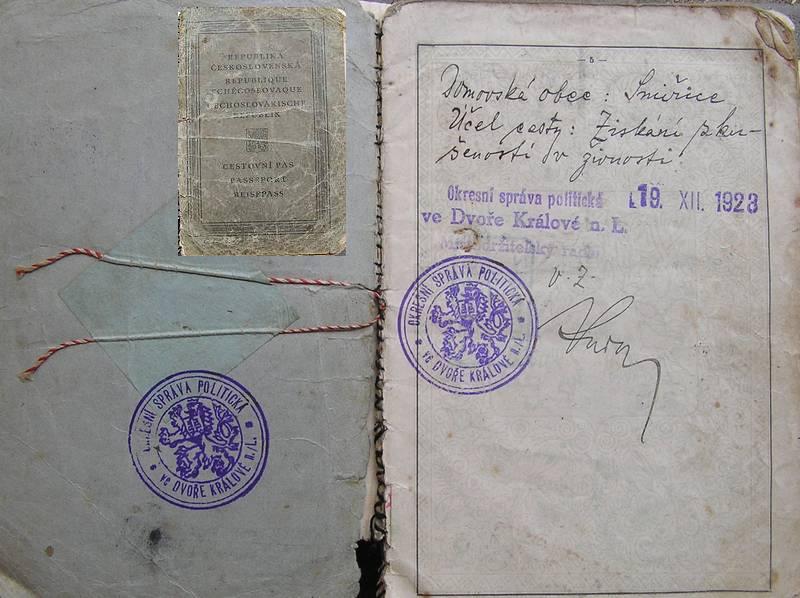 REPUBLIKA
ČESKOSLOVENSKÁ
REPUBLIQUE
TCHÉCOSLOVAQUE
ČECHOSLOVAKISCHE
REPUBLIK
CESTOVNÍ PAS
PASSEPORT
REISEPASS
OKRESNÍ SPRÁVA POLITICKÁ
ve DVOŘE KRÁLOVÉ n./L.
- 5 -
Domovská obec : Smiřice
Účel cesty : Získání zku-
šeností v živnosti.
Okresní správa politická 19. XII. 1923
ve Dvoře Králové n. L.
Místodržitelský rada
v. z.
OKRESNÍ SPRÁVA POLITICKÁ
ve DVOŘE KRÁLOVÉ n./L.